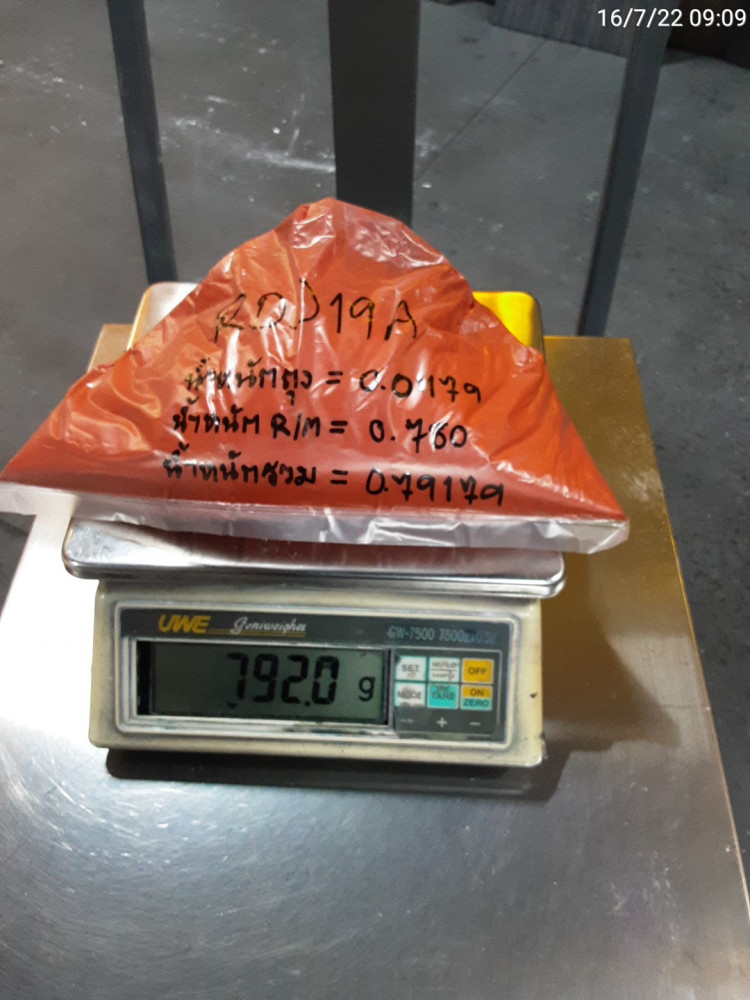 16/7/22 09:09
RQD19A
น้ำหนักถุง = 0.0179
น้ำหนัก R/M = 0.780
น้ำหนักรวม = 0.79179
UWE Geniweigher
GW-7500 7500g
792.0 g
SET
OFF
MODE
TARE
ON
ZERO
+ -